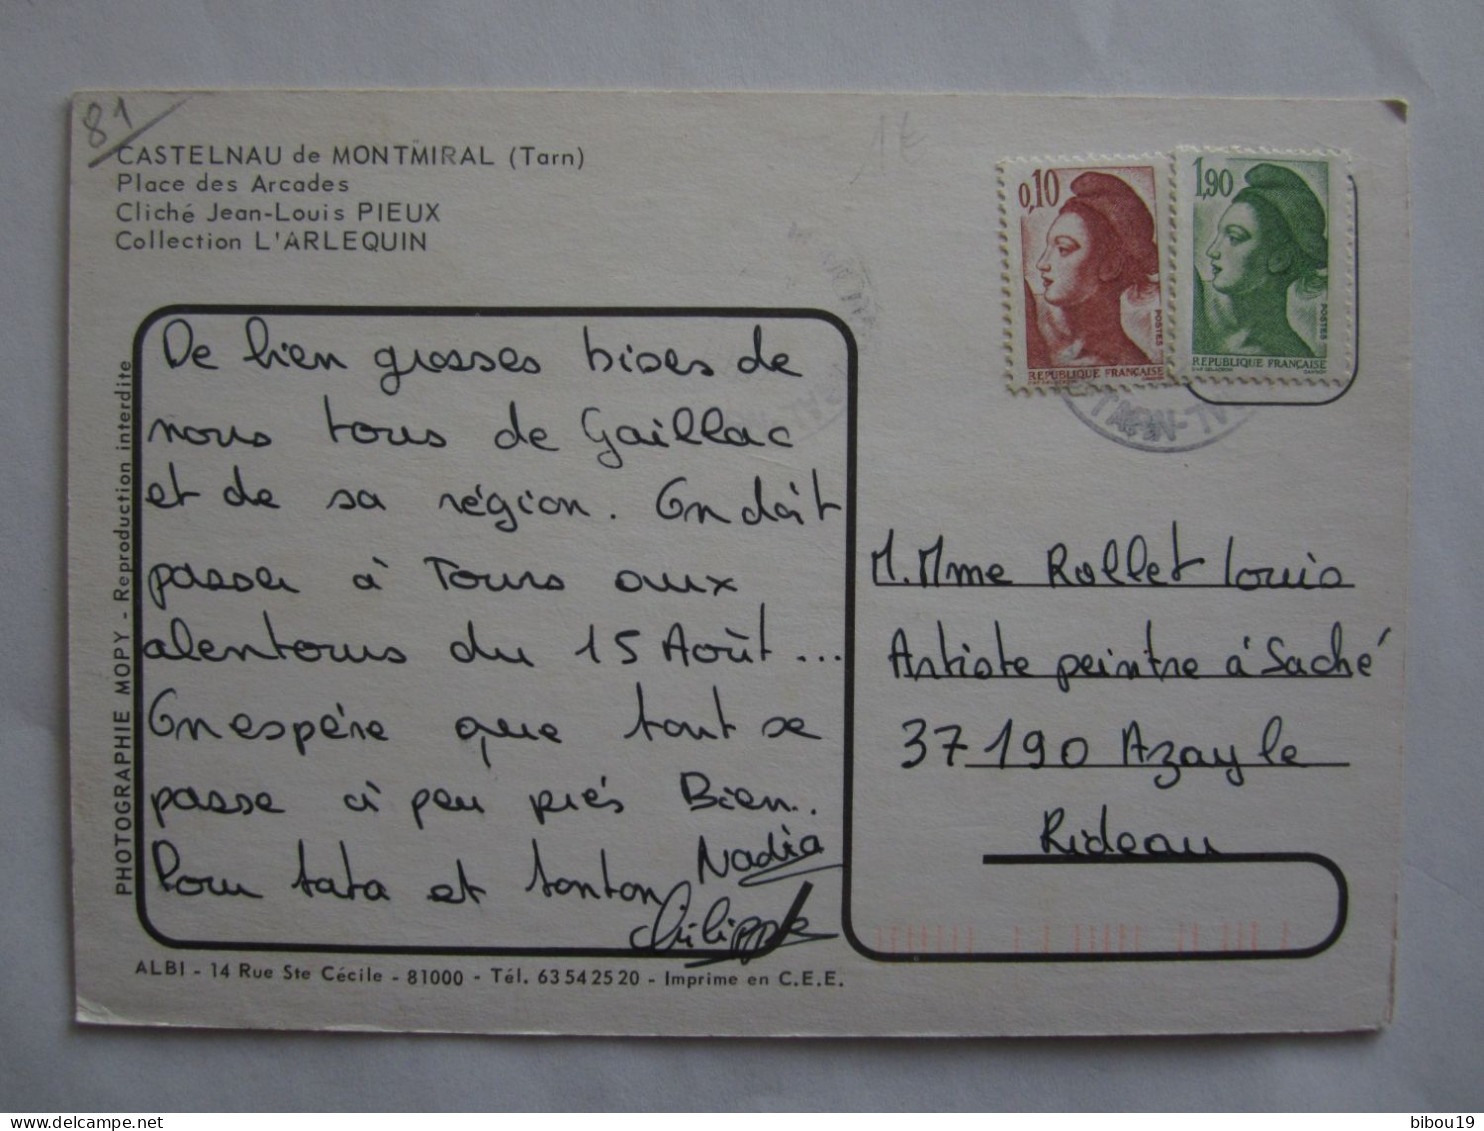 81
1€
CASTELNAU de MONTMIRAL (Tarn)
Place des Arcades
Cliché Jean-Louis PIEUX
Collection L'ARLEQUIN
0,10
POSTES
REPUBLIQUE FRANÇAISE
1,90
POSTES
REPUBLIQUE FRANÇAISE
De bien grosses bises de
nous tous de Gaillac
et de sa région. On doit
passer à Tours aux
alentours du 15 Août...
On espère que tout se
passe à peu près Bien.
Pour tata et tonton
Nadia
Philippe
M. Mme Rollet Louis
Artiste peintre à Saché
37190 Azay le
Rideau
PHOTOGRAPHIE MOPY - Reproduction interdite
ALBI - 14 Rue Ste Cécile - 81000 - Tél. 63 54 25 20 - Imprime en C.E.E.
bibou19